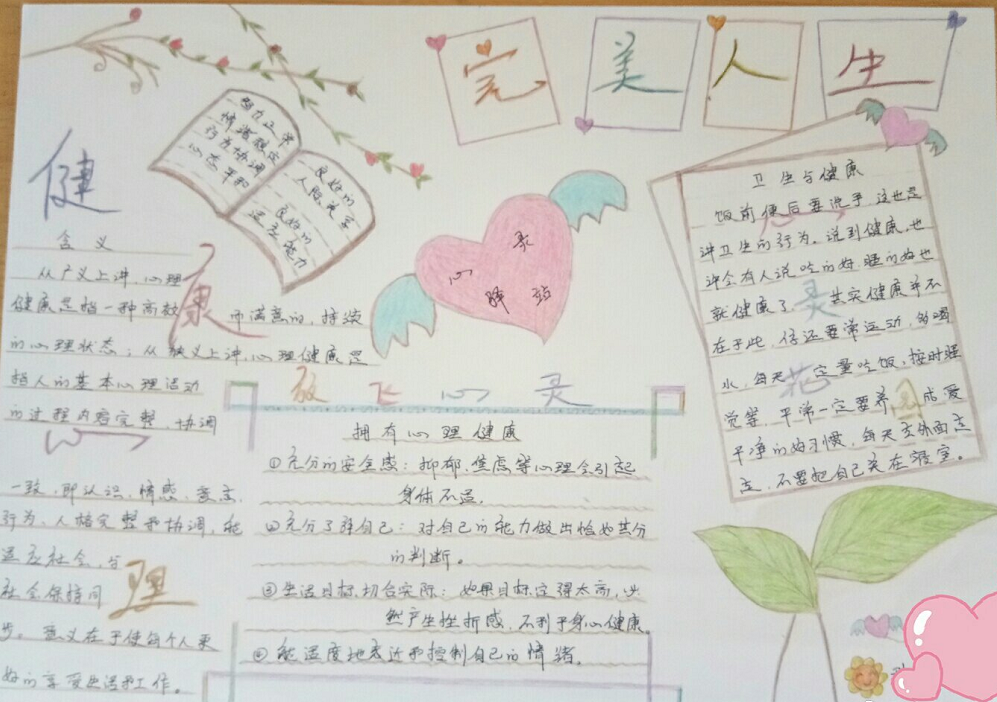 完美人生
智力正常
情绪稳定
行为协调
心态平和
良好的
人际关系
良好的
适应能力
健
康
心
理
含义
从广义上讲,心理
健康是指一种高效 而满意的,持续
的心理状态;从狭义上讲,心理健康是
指人的基本心理活动
的过程内容完整、协调
一致,即认识、情感、意志、
行为、人格完整和协调,能
适应社会,与
社会保持同
步。意义在于使每个人更
好的享受生活和工作。
心灵
驿站
放飞心灵
拥有心理健康
①充分的安全感:抑郁、焦虑等心理会引起
身体不适。
②充分了解自己:对自己的能力做出恰如其分
的判断。
③生活目标切合实际:如果目标定得太高,必
然产生挫折感,不利于身心健康。
④能适度地表达和控制自己的情绪。
心
灵
花
卫生与健康
饭前便后要洗手,这也是
讲卫生的行为。说到健康,也
许会有人说吃的好 睡的好也
就健康了,其实健康并不
在于此,你还要常运动,多喝
水,每天定量吃饭,按时睡
觉等,平常一定要养成爱
干净的好习惯,每天去外面走
走,不要把自己关在寝室。